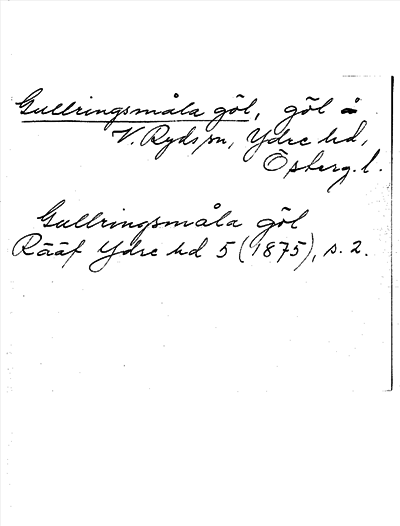 Gullringsmåla göl, göl å
V. Ryds sn, Ydre hd,
Österg. l.
Gullringsmåla göl
Rääf Ydre hd 5 (1875), s. 2.